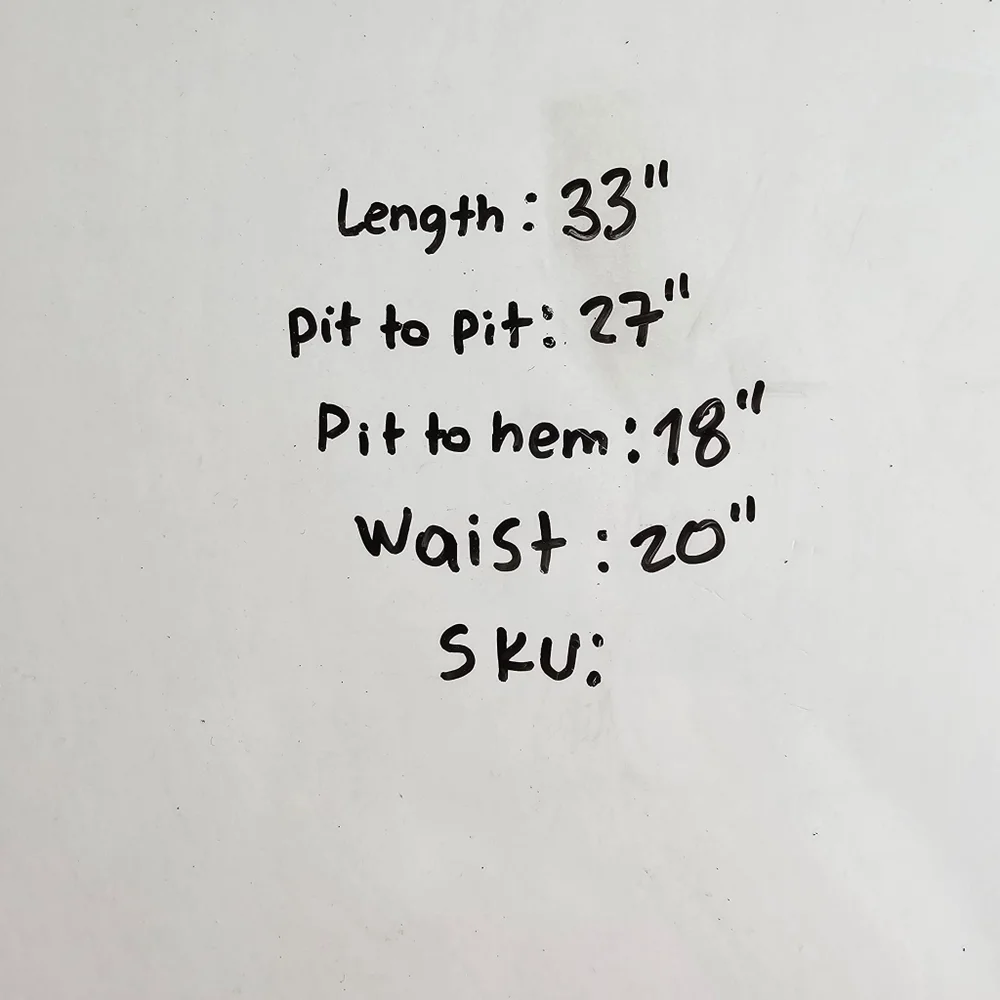 Length: 33"
pit to pit: 27"
Pit to hem: 18"
Waist: 20"
SKU: